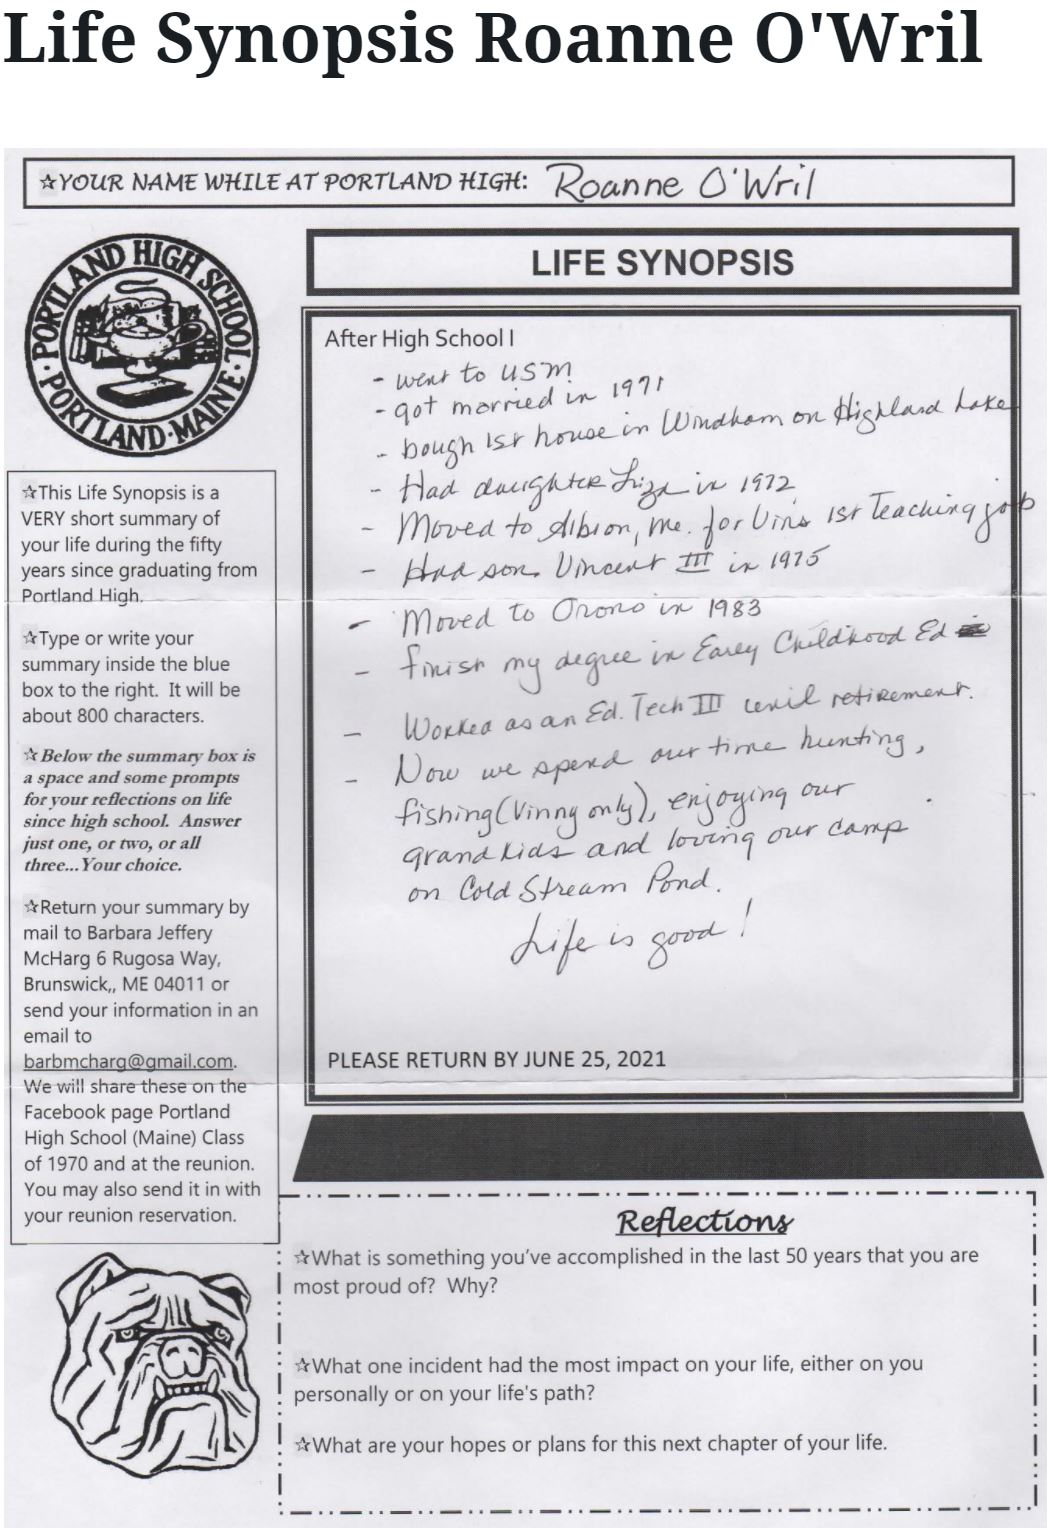 Life Synopsis Roanne O'Wril
☆YOUR NAME WHILE AT PORTLAND HIGH: Roanne O'Wril
PORTLAND HIGH SCHOOL · PORTLAND · MAINE ·
LIFE SYNOPSIS
After High School I
- went to USM
- got married in 1971
- bough 1st house in Windham on Highland Lake
- Had daughter Liza in 1972
- Moved to Albion, Me. for Vin's 1st Teaching job
- Had son Vincent III in 1975
- Moved to Orono in 1983
- finish my degree in Earley Childhood Ed
- Worked as an Ed. Tech III until retirement.
- Now we spend our time hunting,
fishing (Vinny only), enjoying our
grandkids and loving our camp
on Cold Stream Pond.
Life is good!
PLEASE RETURN BY JUNE 25, 2021
☆This Life Synopsis is a
VERY short summary of
your life during the fifty
years since graduating from
Portland High.
☆Type or write your
summary inside the blue
box to the right.  It will be
about 800 characters.
☆Below the summary box is
a space and some prompts
for your reflections on life
since high school.  Answer
just one, or two, or all
three...Your choice.
☆Return your summary by
mail to Barbara Jeffery
McHarg 6 Rugosa Way,
Brunswick,, ME 04011 or
send your information in an
email to
barbmcharg@gmail.com.
We will share these on the
Facebook page Portland
High School (Maine) Class
of 1970 and at the reunion.
You may also send it in with
your reunion reservation.
Reflections
☆What is something you've accomplished in the last 50 years that you are
most proud of?  Why?
☆What one incident had the most impact on your life, either on you
personally or on your life's path?
☆What are your hopes or plans for this next chapter of your life.